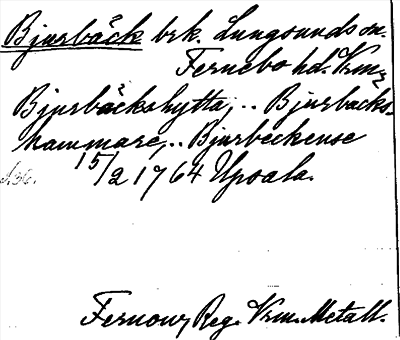 Bjurbäck brk. Lungsunds sn.
Fernebo hd. Vrm.
Bjurbäckshytta, .. Bjurbacks-
hammare, .. Bjurbeckense
15/2 1764 Upsala.
Fernow, Reg. Vrm. Metall.